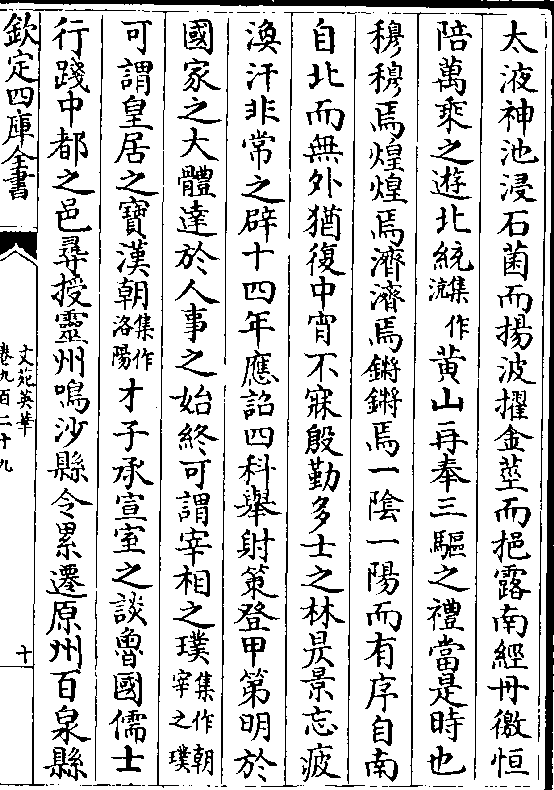 太液神池浸石菌而揚波擢金莖而挹露南經丹徼恒
陪萬乘之遊北統集作流黃山再奉三驅之禮當是時也
穆穆焉煌煌焉濟濟焉鏘鏘焉一陰一陽而有序自南
自北而無外猶復中宵不寐殷勤多士之林昃景忘疲
渙汗非常之辟十四年應詔四科舉射策登甲第明於
國家之大體達於人事之始終可謂宰相之璞集作朝宰之璞
可謂皇居之寶漢朝集作洛陽才子承宣室之談魯國儒士
行踐中都之邑尋授靈州鳴沙縣令累遷原州百泉縣
欽定四庫全書
文苑英華
卷九百二十九
十